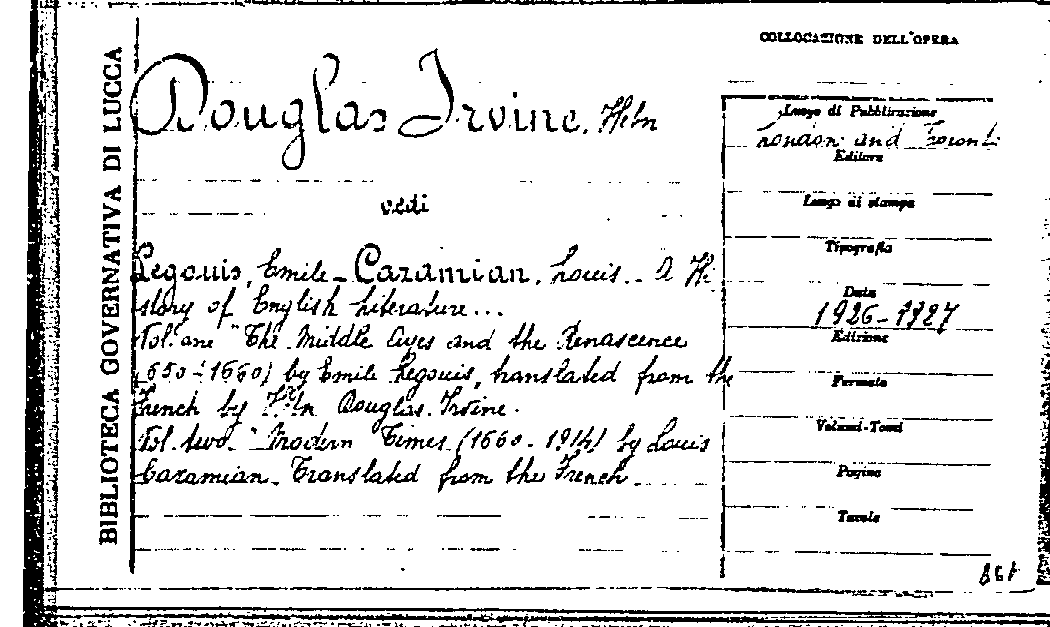 BIBLIOTECA GOVERNATIVA DI LUCCA
COLLOCAZIONE DELL'OPERA
Douglas Irvine, Heln
vedi
Legouis, Emile - Cazamian, Louis.. A Hi
story of English Literature...
Vol. one "The Middle Ages and the Renascence
(650-1660) by Emile Legouis, translated from the
French by Heln Douglas Irvine.
Vol. two. "Modern Times (1660-1914) by Louis
Cazamian. Translated from the French
Luogo di Pubblicazione
London and Toront
Editore
Luogo di stampa
Tipografia
Data
1926-1927
Edizione
Formato
Volumi-Tomi
Pagine
Tavole